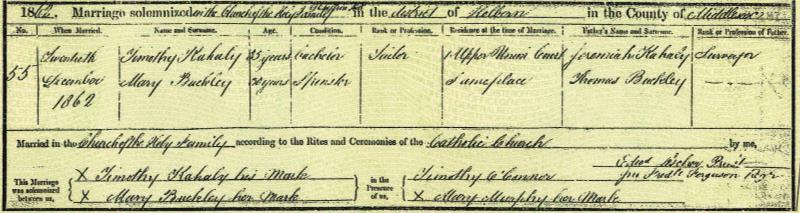 1862. Marriage solemnized in the Church of the Holy Family in the District of Holborn in the County of Middlesex
No. When Married. Name and Surname. Age. Condition. Rank or Profession. Residence at the time of Marriage. Father's Name and Surname. Rank or Profession of Father.
55 Twentieth Timothy Kahaly 35 years Bachelor Tailor 1 Upper Union Court Jeremiah Kahaly Surveyor
December Mary Buckley 30 years Spinster Same place Thomas Buckley
1862
Married in the Church of the Holy Family according to the Rites and Ceremonies of the Catholic Church by me,
This Marriage was solemnized between us, X Timothy Kahaly his Mark in the Presence of us, Timothy O'Connor Priest
X Mary Buckley her Mark X Mary Murphy her Mark Ferguson